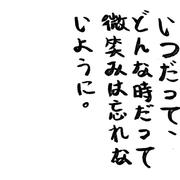 いつだって、
どんな時だって
微笑みは忘れな
いように。